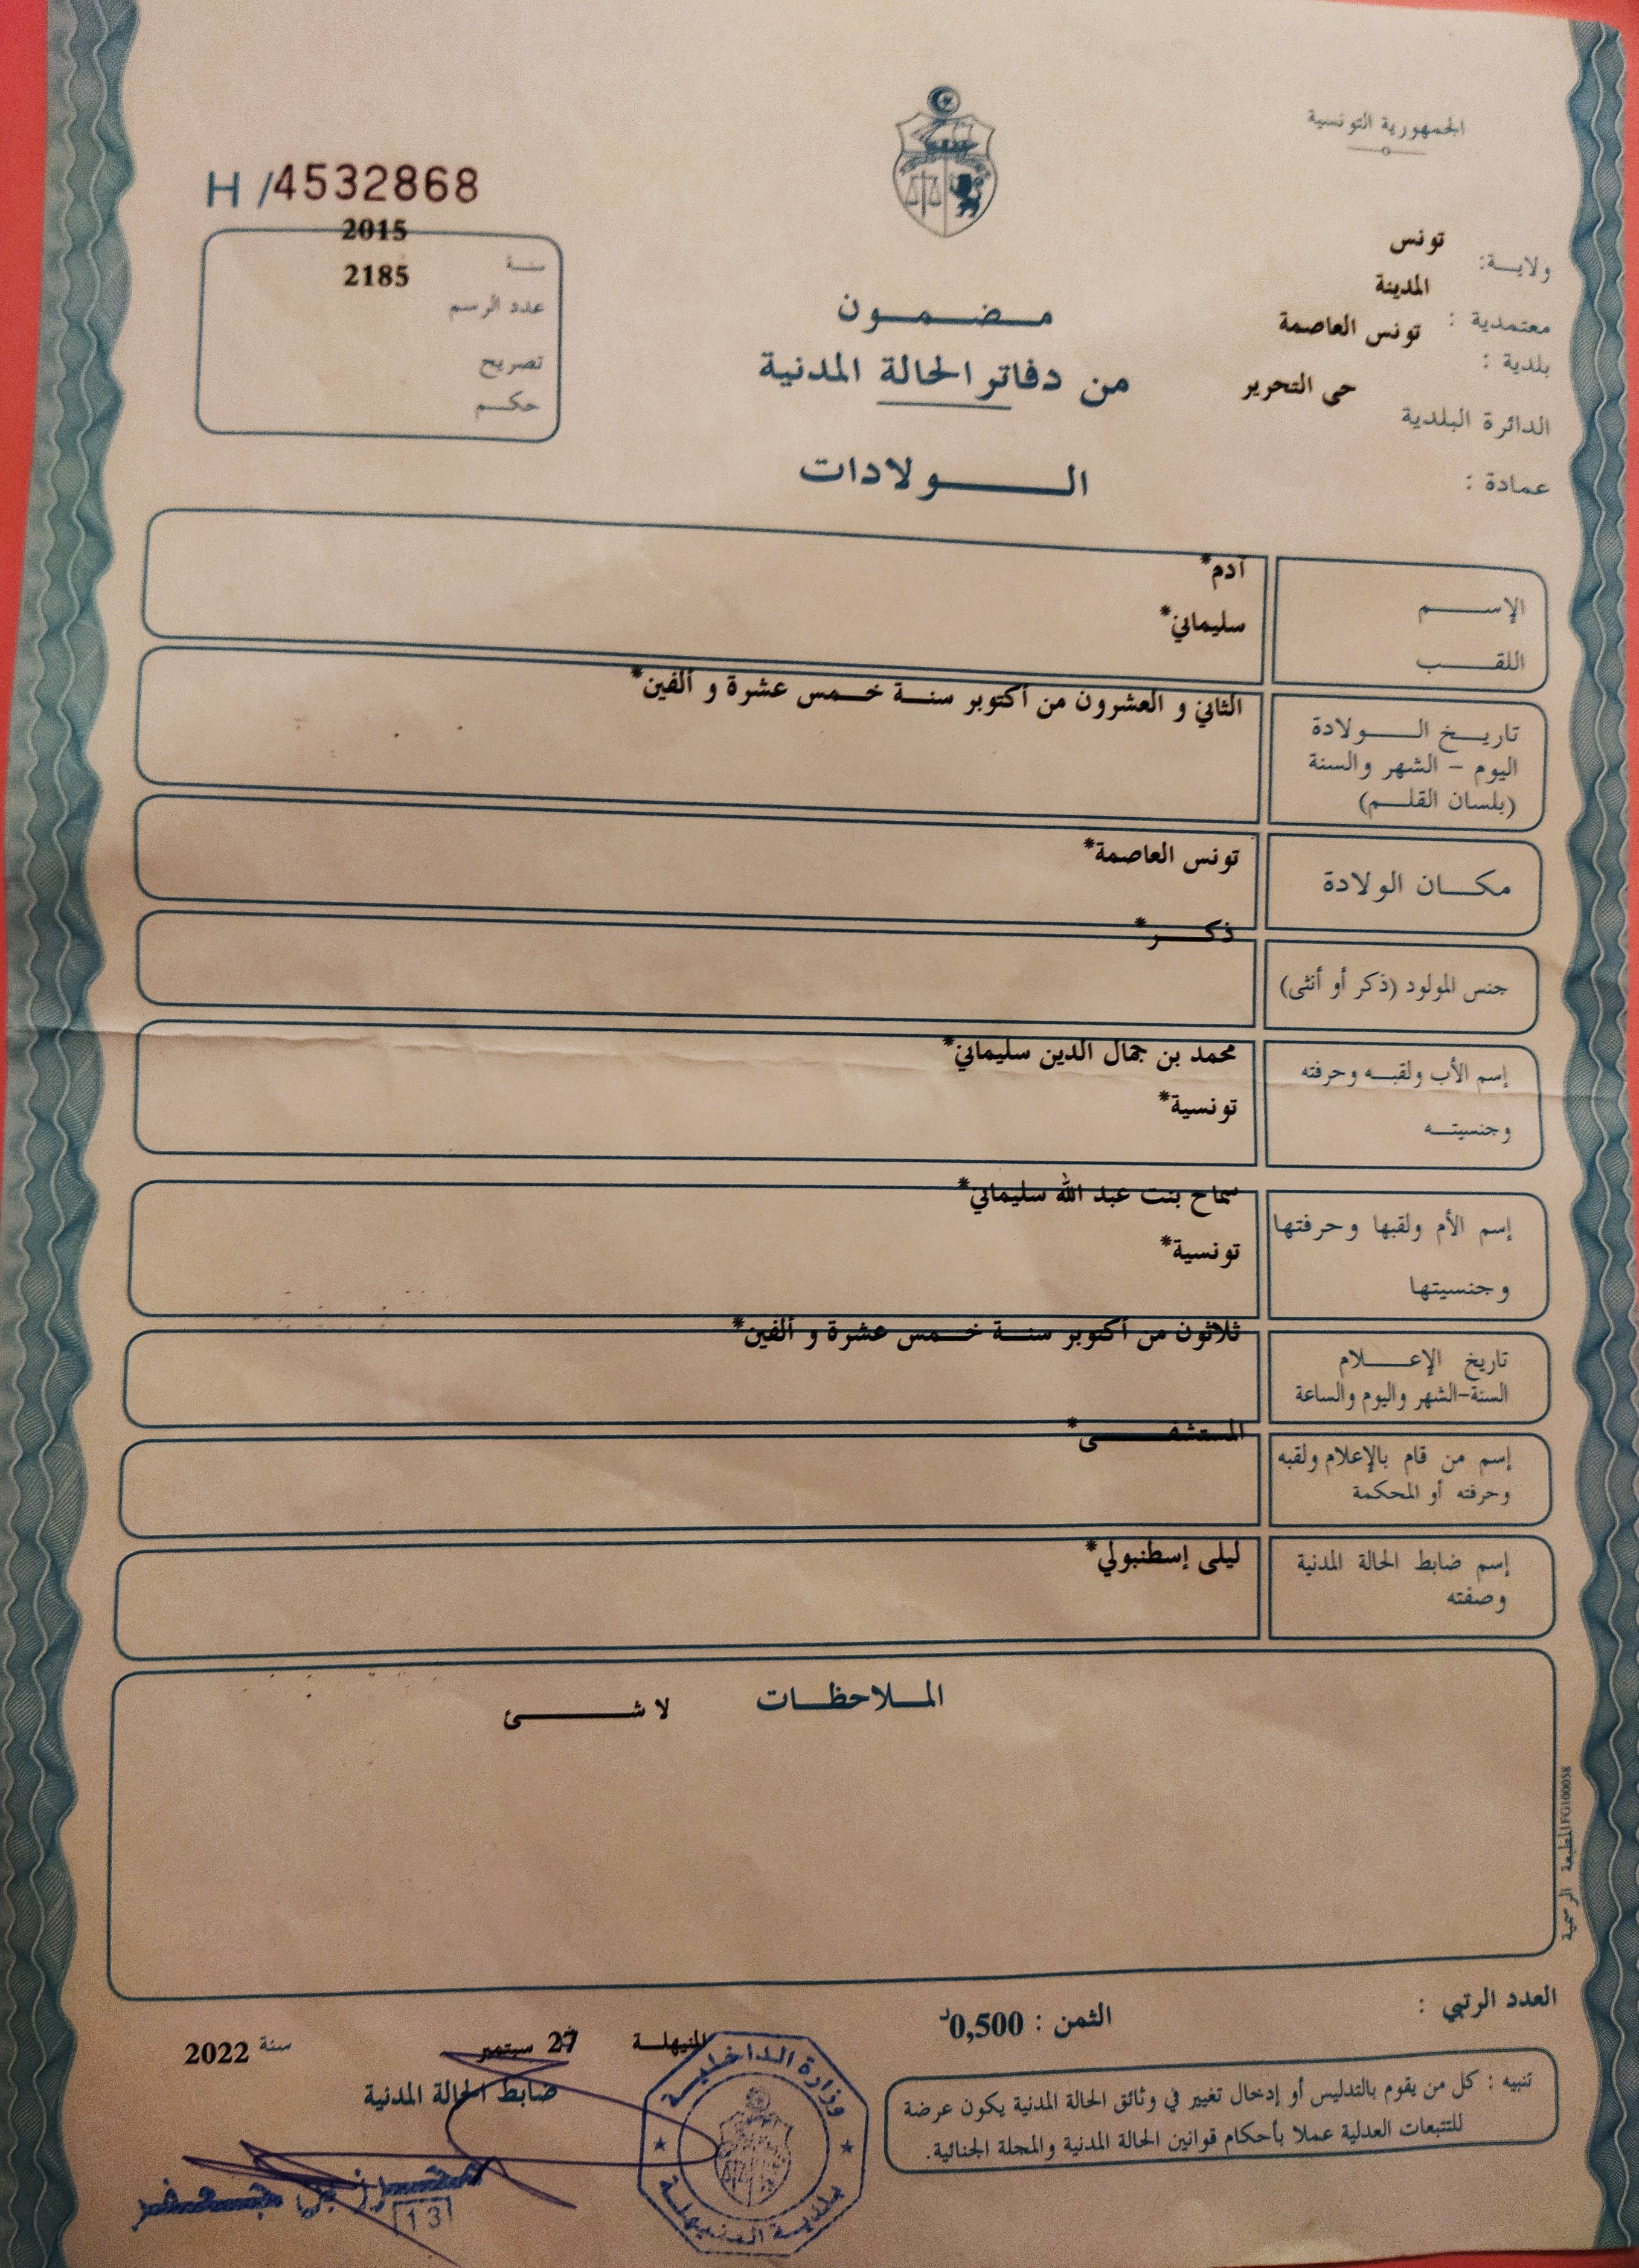 الجمهورية التونسية
H /4532868
ولايـة: تونس
معتمدية : المدينة
بلدية : تونس العاصمة
الدائرة البلدية حي التحرير
عمادة :
سنة 2015
عدد الرسم 2185
تصريح
حكم
مضمون
من دفاتر الحالة المدنية
الولادات
الإسم آدم*
اللقب سليماني*
تاريخ الولادة
اليوم - الشهر والسنة
(بلسان القلم)
الثاني و العشرون من أكتوبر سنة خمس عشرة و ألفين*
مكان الولادة تونس العاصمة*
جنس المولود (ذكر أو أنثى) ذكر*
إسم الأب ولقبه وحرفته محمد بن جمال الدين سليماني*
وجنسيته تونسية*
إسم الأم ولقبها وحرفتها سماح بنت عبد الله سليماني*
وجنسيتها تونسية*
تاريخ الإعلام
السنة-الشهر واليوم والساعة
ثلاثون من أكتوبر سنة خمس عشرة و ألفين*
إسم من قام بالإعلام ولقبه
وحرفته أو المحكمة
المستشفى*
إسم ضابط الحالة المدنية
وصفته
ليلى إسطنبولي*
الملاحظات لا شئ
المطبعة الرسمية FG100058
العدد الرتبي :
الثمن : 0,500د
المنيهلة 27 سبتمبر سنة 2022
ضابط الحالة المدنية
تنبيه : كل من يقوم بالتدليس أو إدخال تغيير في وثائق الحالة المدنية يكون عرضة
للتتبعات العدلية عملا بأحكام قوانين الحالة المدنية والمجلة الجنائية.
وزارة الداخلية
بلدية المنيهلة
محرز بن جعفر
13